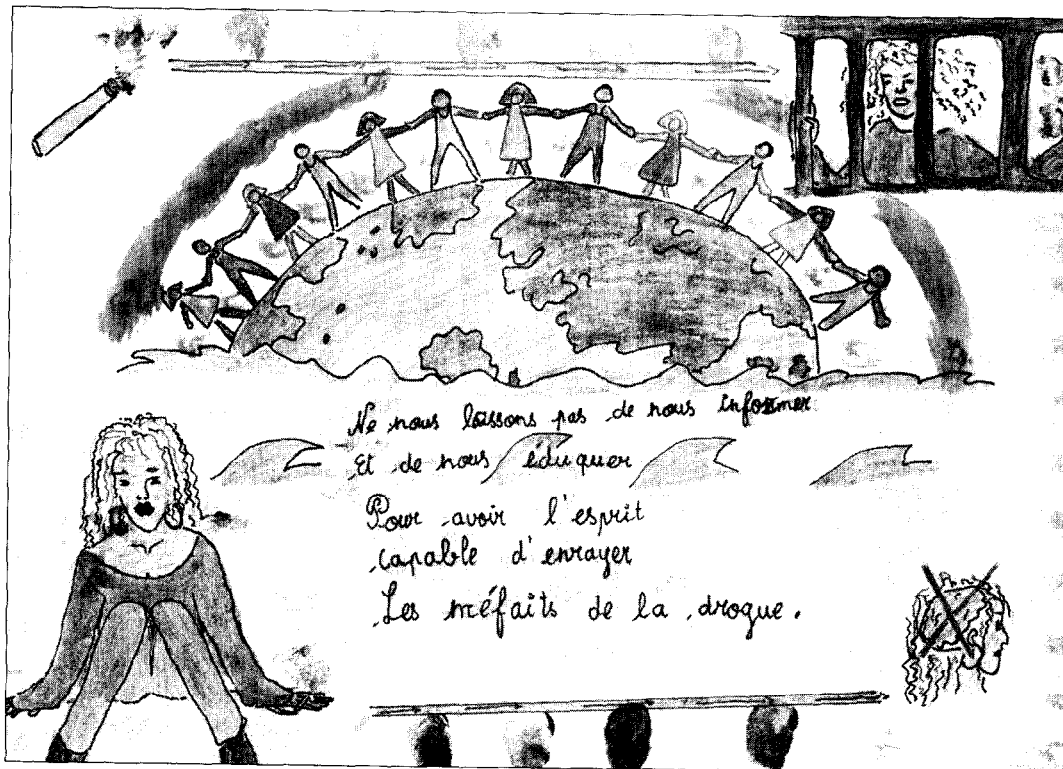 Ne nous laissons pas de nous informer
Et de nous éduquer
Pour avoir l'esprit
capable d'enrayer
Les méfaits de la drogue.